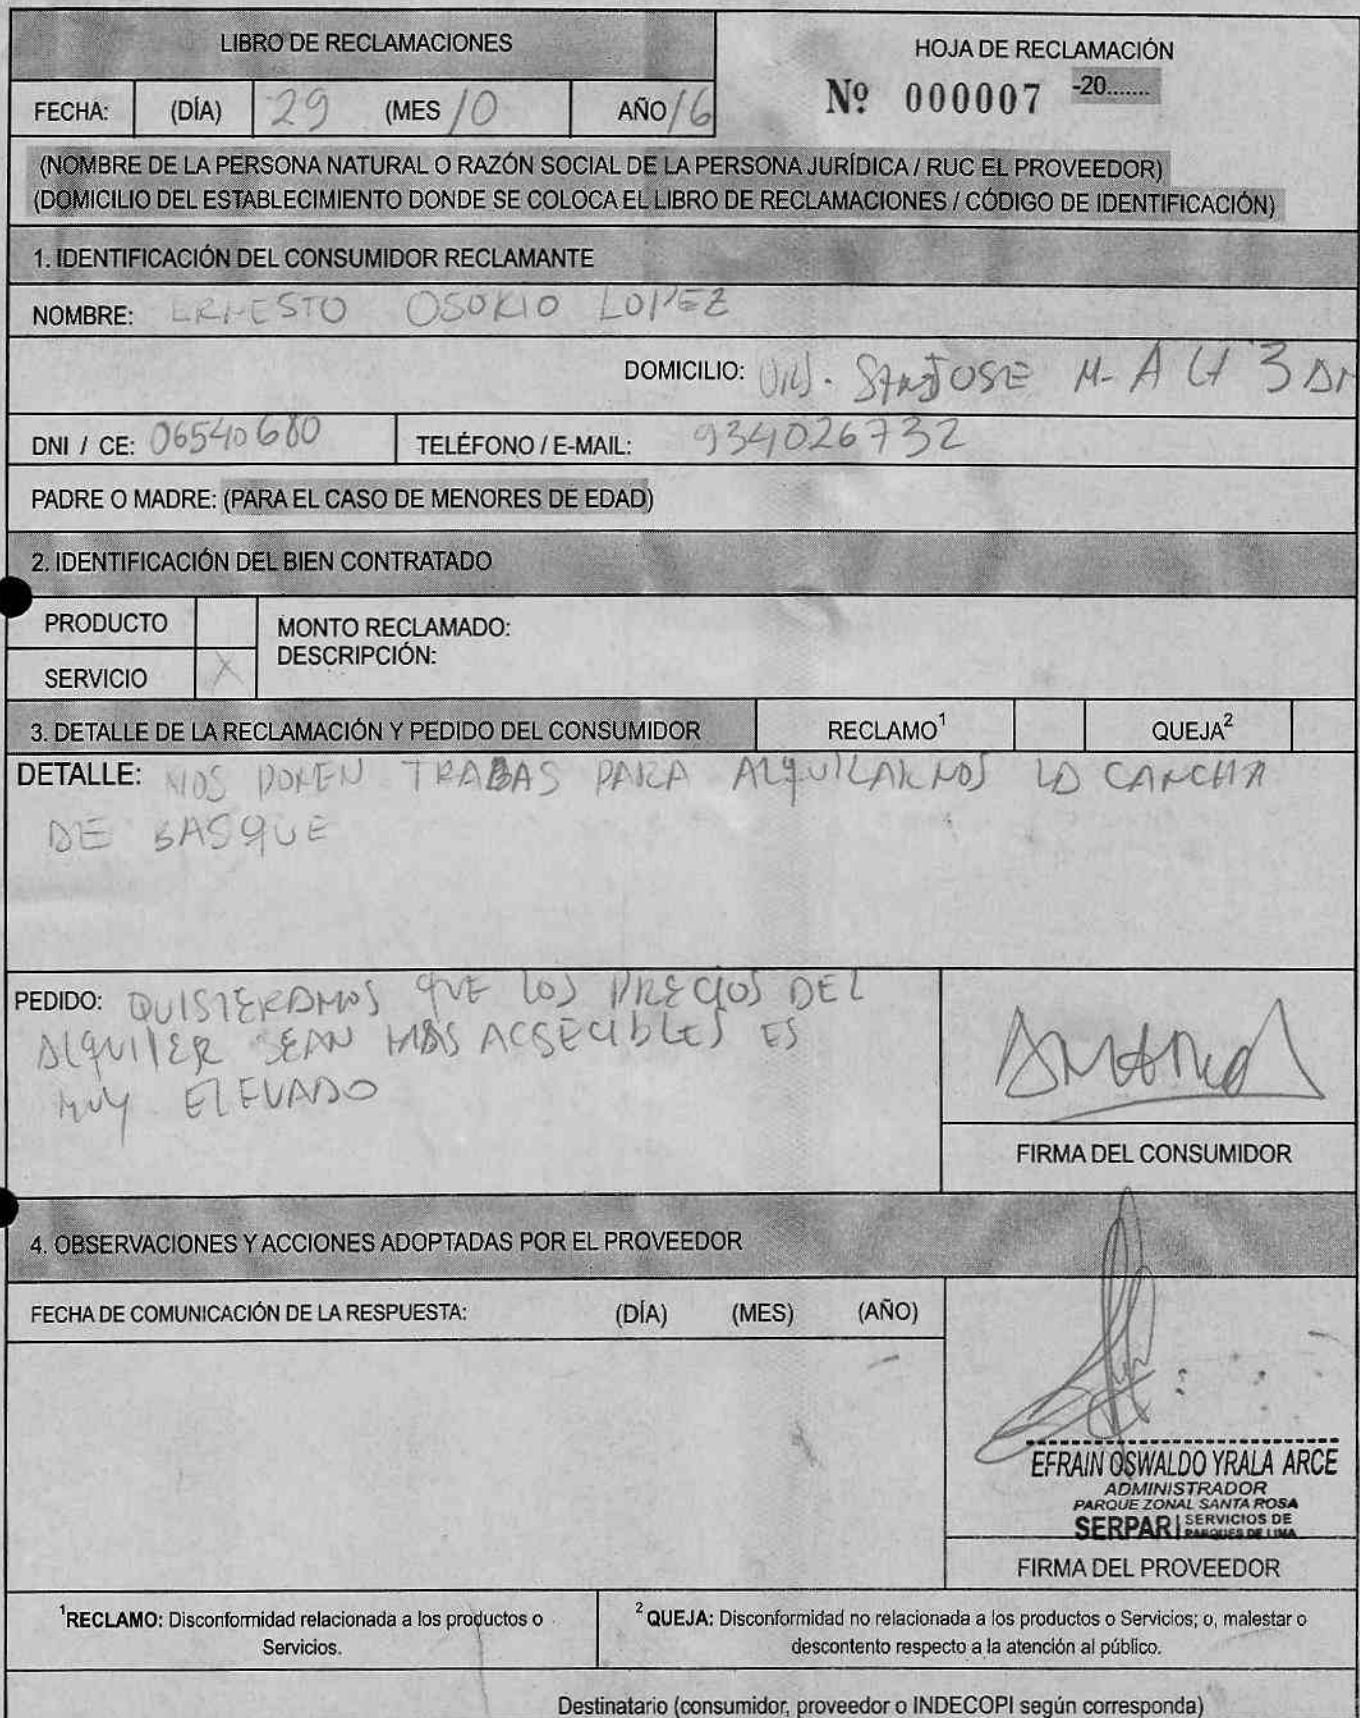 LIBRO DE RECLAMACIONES
HOJA DE RECLAMACIÓN
Nº 000007 -20.......
FECHA: (DÍA) 29 (MES 10 AÑO 16
(NOMBRE DE LA PERSONA NATURAL O RAZÓN SOCIAL DE LA PERSONA JURÍDICA / RUC EL PROVEEDOR)
(DOMICILIO DEL ESTABLECIMIENTO DONDE SE COLOCA EL LIBRO DE RECLAMACIONES / CÓDIGO DE IDENTIFICACIÓN)
1. IDENTIFICACIÓN DEL CONSUMIDOR RECLAMANTE
NOMBRE: ERNESTO OSORIO LOPEZ
DOMICILIO: SANJOSE M-A 3
DNI / CE: 06540680 TELÉFONO / E-MAIL: 934026732
PADRE O MADRE: (PARA EL CASO DE MENORES DE EDAD)
2. IDENTIFICACIÓN DEL BIEN CONTRATADO
PRODUCTO
MONTO RECLAMADO:
DESCRIPCIÓN:
SERVICIO X
3. DETALLE DE LA RECLAMACIÓN Y PEDIDO DEL CONSUMIDOR RECLAMO1 QUEJA2
DETALLE: NOS PONEN TRABAS PARA ALQUILARNOS LA CANCHA
DE BASQUE
PEDIDO: QUISIERAMOS QUE LOS PRECIOS DEL
ALQUILER SEAN MAS ACSECIBLES ES
MUY ELEVADO
FIRMA DEL CONSUMIDOR
4. OBSERVACIONES Y ACCIONES ADOPTADAS POR EL PROVEEDOR
FECHA DE COMUNICACIÓN DE LA RESPUESTA: (DÍA) (MES) (AÑO)
EFRAIN OSWALDO YRALA ARCE
ADMINISTRADOR
PARQUE ZONAL SANTA ROSA
SERPAR SERVICIOS DE
PARQUES DE LIMA
FIRMA DEL PROVEEDOR
1RECLAMO: Disconformidad relacionada a los productos o
Servicios.
2 QUEJA: Disconformidad no relacionada a los productos o Servicios; o, malestar o
descontento respecto a la atención al público.
Destinatario (consumidor, proveedor o INDECOPI según corresponda)